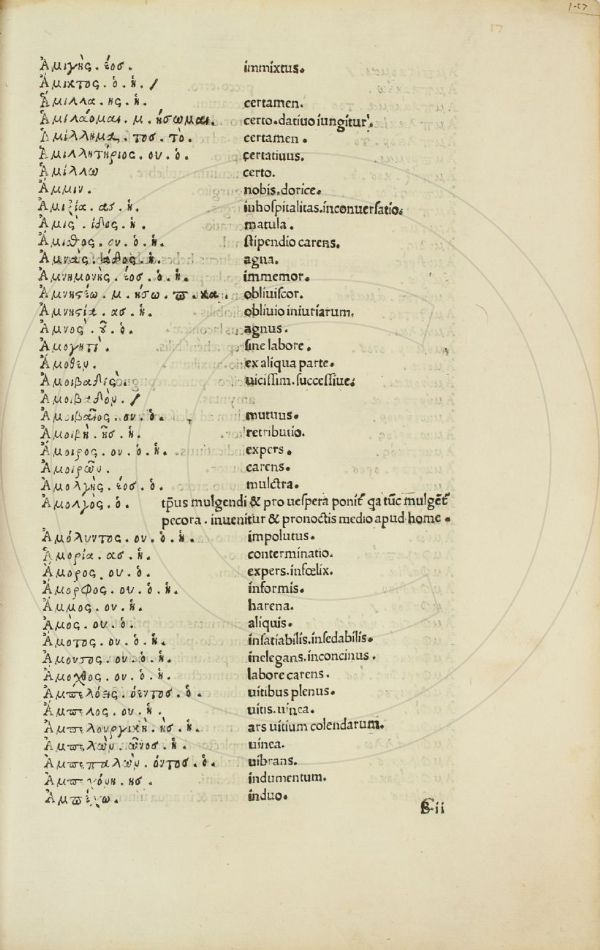 Ἀμιγὴς . έοσ . immixtus.
Ἄμικτος . ὁ . ἡ . /
Ἅμιλλα . ης . ἡ . certamen.
Ἁμιλάομαι . μ . ήσωμαι . certo . datiuo iungitur.
Ἁμίλλημα . τοσ . τὸ . certamen .
Ἁμιλλητήριος . ου . ὁ . certatiuus.
Ἁμίλλω certo.
Ἄμμιν . nobis . dorice.
Ἀμιξία . ασ . ἡ . iuhospitalitas . inconuersatio.
Ἀμὶς . ίδος . ἡ . matula.
Ἄμισθος . ου . ὁ . ἡ . stipendio carens.
Ἀμνὰς . άδος . ἡ . agna.
Ἀμνημονὴς . έοσ . ὁ . ἡ . immemor.
Ἀμνηστέω . μ . ήσω . π . κα . obliuiscor.
Ἀμνηστία . ασ . ἡ . obliuio iniuriarum.
Ἀμνος . οῦ . ὁ . agnus.
Ἀμογητὶ . sine labore.
Ἀμοθεν . ex aliqua parte.
Ἀμοιβαδὶς . uicissim . successiue.
Ἀμοιβαδὸν . /
Ἀμοιβαῖος . ου . ὁ . mutuus.
Ἀμοιβὴ . ῆς . ἡ . retributio.
Ἄμοιρος . ου . ὁ . ἡ . expers.
Ἀμοιρῶν . carens.
Ἀμολγὴς . έοσ . ὁ . mulctra.
Ἀμολγὸς . ὁ . tp̄us mulgendi & pro uespera ponit̄ qa tūc mulgēt̄
pecora . inuenitur & pronoctis medio apud home .
Ἀμόλυντος . ου . ὁ . ἡ . impolutus.
Ἀμορία . ασ . ἡ . conterminatio.
Ἄμορος . ου . ὁ . expers . infœlix.
Ἄμορφος . ου . ὁ . ἡ . informis.
Ἄμμος . ου . ἡ . harena.
Ἀμος . ου . ὁ . aliquis.
Ἄμοτος . ου . ὁ . ἡ . insatiabilis . insedabilis.
Ἄμουσος . ου . ὁ . ἡ . inelegans . inconcinus .
Ἄμοχθος . ου . ὁ . ἡ . labore carens.
Ἀμπελόεις . όεντος . ὁ . uitibus plenus.
Ἄμπελος . ου . ἡ . uitis . uinea.
Ἀμπελουργικὴ . ῆσ . ἡ . ars uitium colendarum.
Ἀμπελὼν . ῶνος . ἡ . uinea.
Ἀμπεπαλὼν . όντος . ὁ . uibrans.
Ἀμπεχόνη . ησ . indumentum.
Ἀμπέχω . induo.
ii